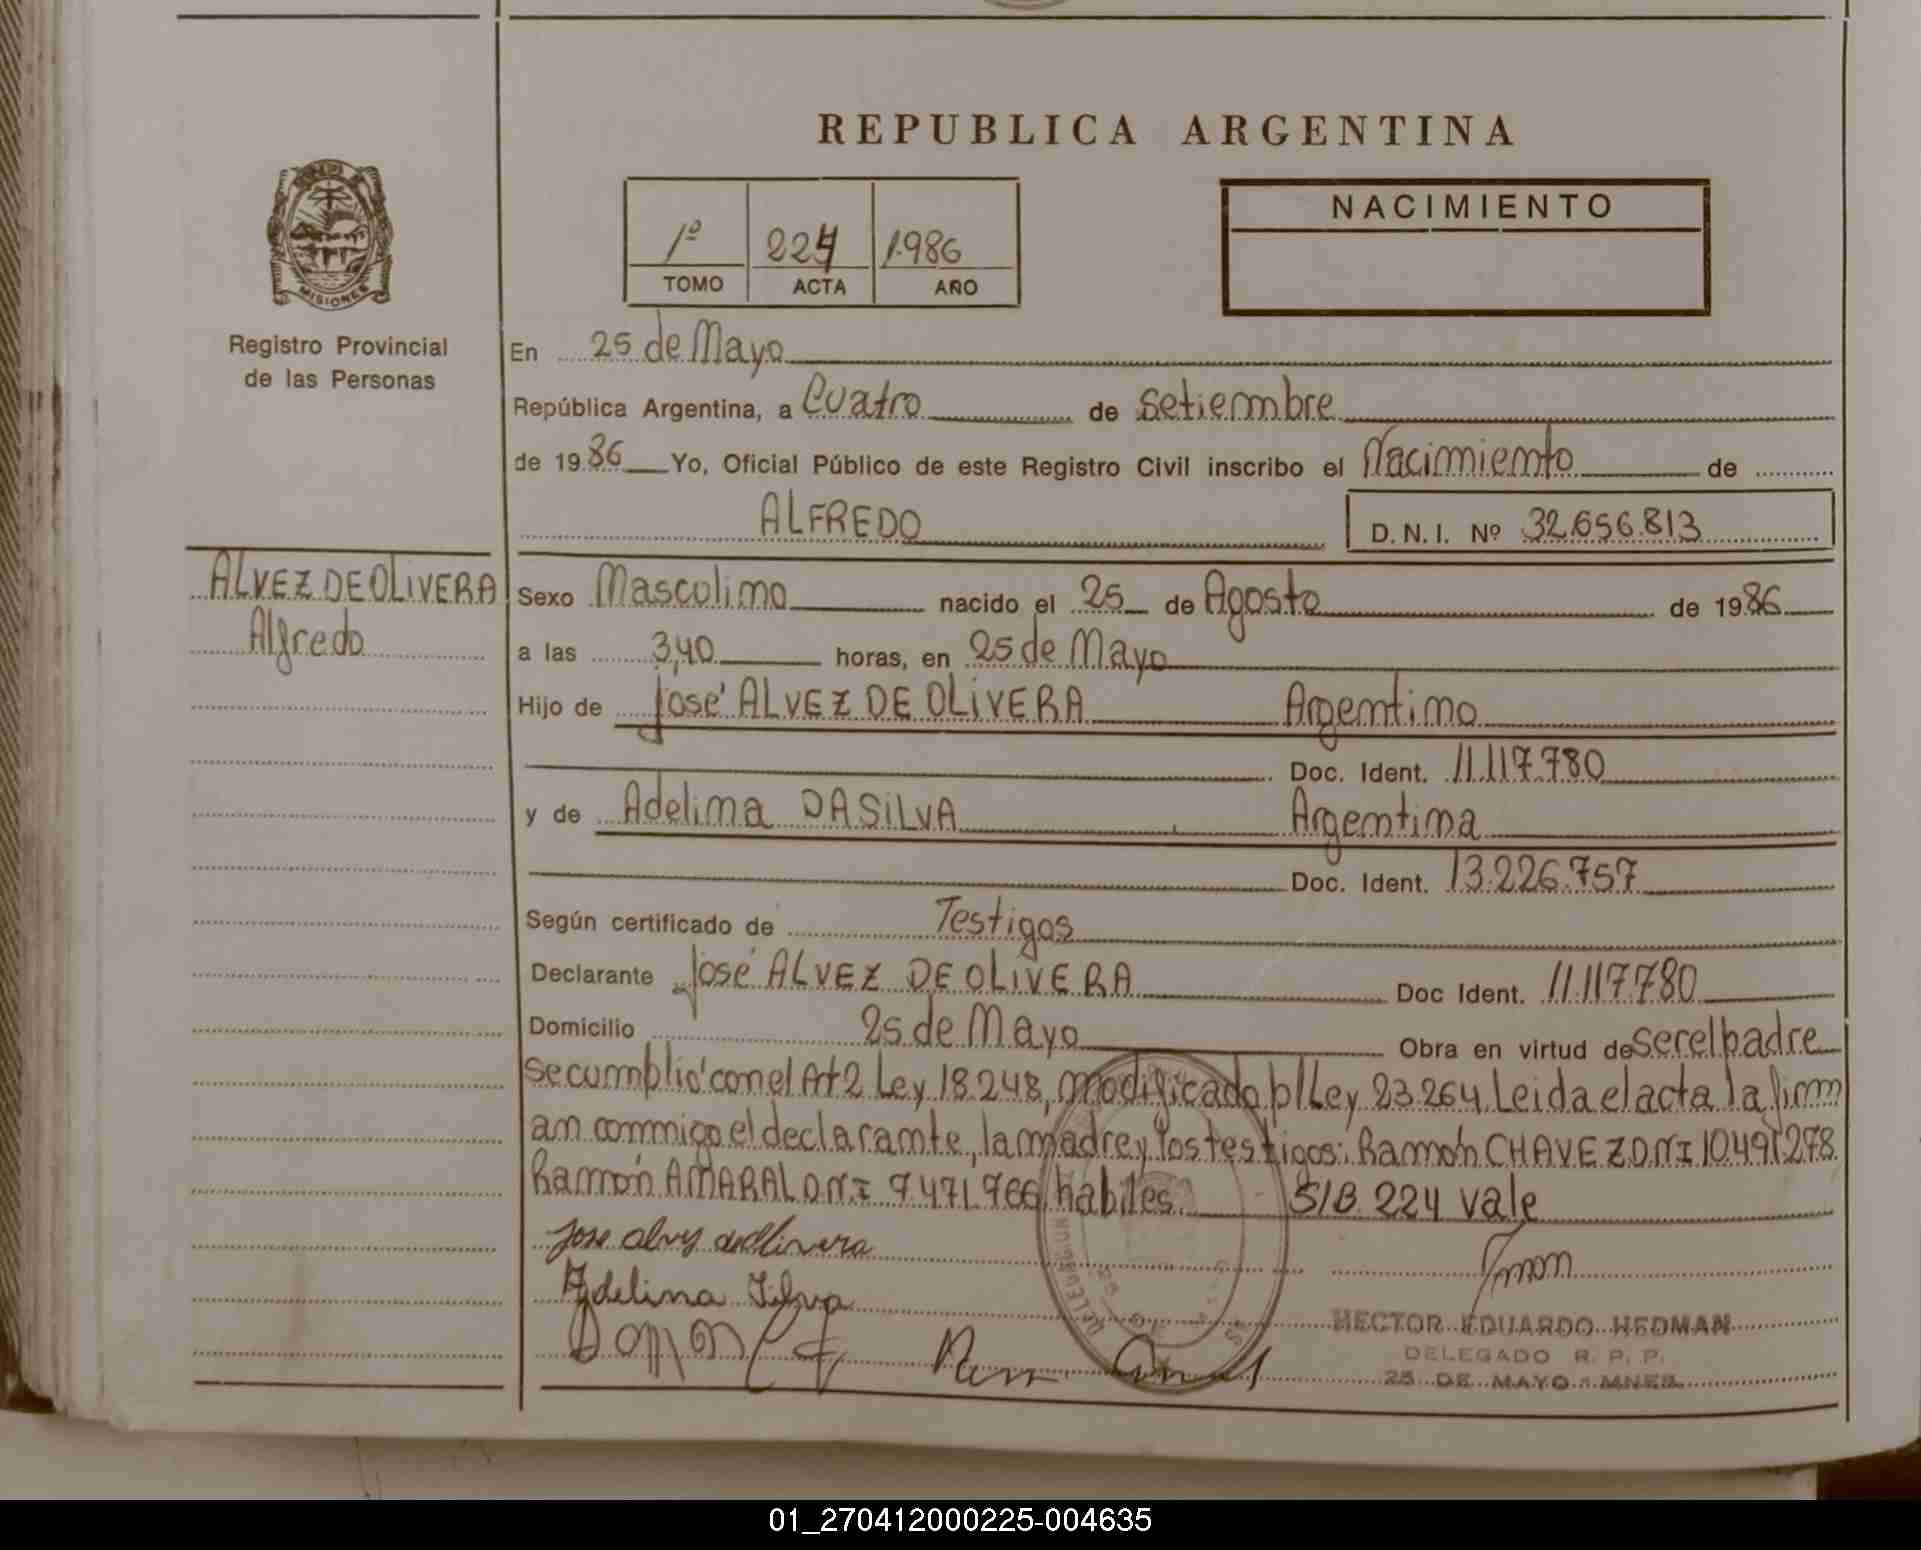 REPUBLICA ARGENTINA
NACIMIENTO
1º 224 1.986
TOMO ACTA AÑO
MISIONES
Registro Provincial
de las Personas
En 25 de Mayo
República Argentina, a Cuatro de setiembre
de 1986 Yo, Oficial Público de este Registro Civil inscribo el Nacimiento de
ALFREDO D.N.I. Nº 32.656.813
ALVEZ DE OLIVERA
Alfredo
Sexo Masculino nacido el 25 de Agosto de 1986
a las 3,40 horas, en 25 de Mayo
Hijo de José ALVEZ DE OLIVERA Argentino
Doc. Ident. 11.117.780
y de Adelina DA SILVA Argentina
Doc. Ident. 13.226.757
Según certificado de Testigos
Declarante José ALVEZ DE OLIVERA Doc Ident. 11.117.780
Domicilio 25 de Mayo Obra en virtud de ser el padre
se cumplió con el Art 2 Ley 18.248, modificado p/ Ley 23.264 Leida el acta la firm
an conmigo el declarante, la madre y los testigos: Ramón CHAVEZ DNI 10.491.278.
Ramón AMARAL DNI 7.471.966, habiles. S/B. 224 vale
Adelina Silva
HECTOR EDUARDO HEDMAN
DELEGADO R. P. P.
25 DE MAYO - MNES.
01_270412000225-004635